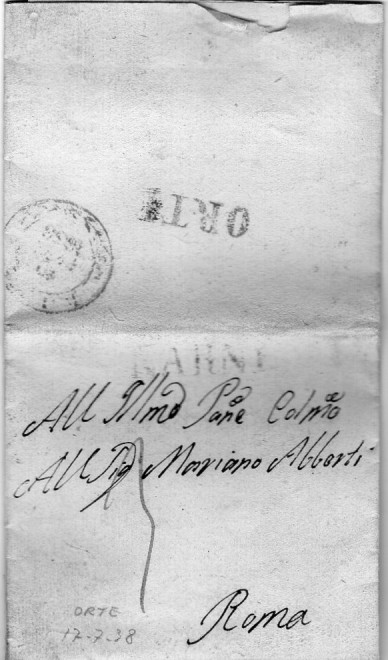 ORTE
NARNI
All Illmo Pane Colmo
All Sig Mariano Alberti
Roma
ORTE
17-7-38